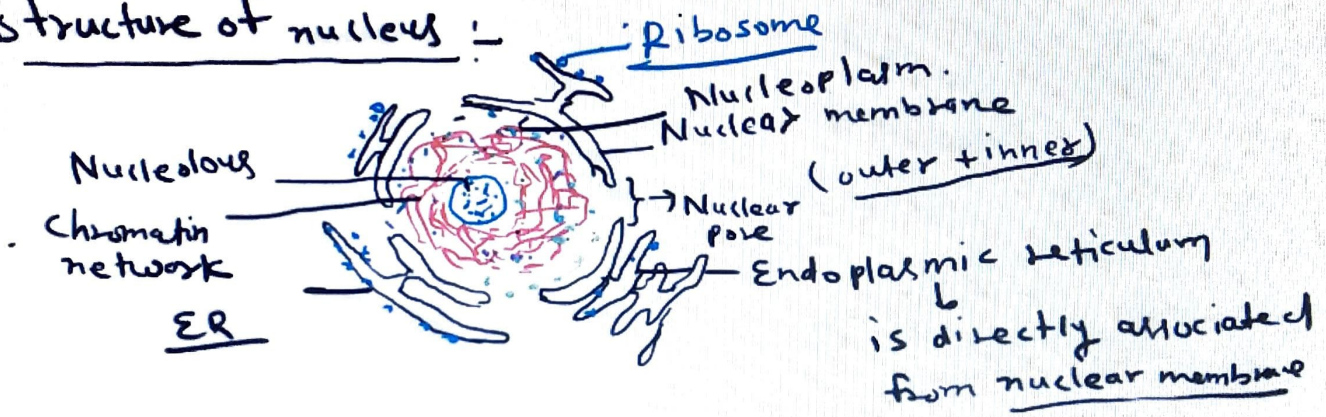 structure of nucleus :-
Ribosome
Nucleoplasm.
Nuclear membrane
(outer + inner)
Nucleolous
Chromatin
network
ER
} → Nuclear
pore
Endoplasmic reticulum
↳
is directly associated
from nuclear membrane